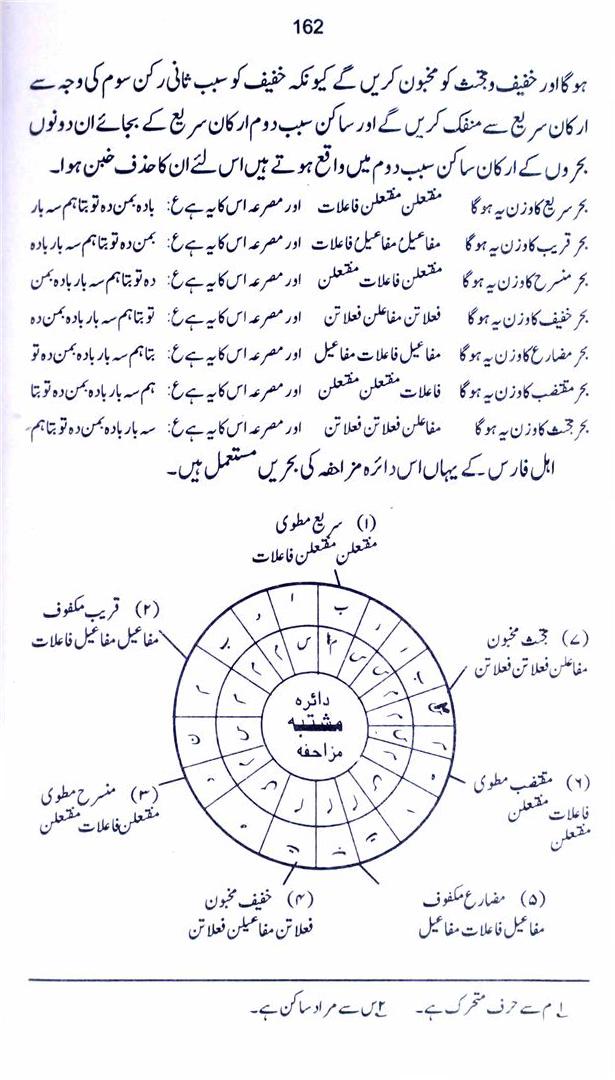 162
ہوگا اور خفیف و مجتث کو مخبون کریں گے کیونکہ خفیف کو سبب ثانی رکن سوم کی وجہ سے
ارکان سریع سے منفک کریں گے اور ساکن سبب دوم ارکان سریع کے بجائے ان دونوں
بحروں کے ارکان ساکن سبب دوم میں واقع ہوتے ہیں اس لئے ان کا حذف خبن ہوا۔
بحر سریع کا وزن یہ ہوگا مفتعلن مفتعلن فاعلات اور مصرعہ اس کا یہ ہے ع: بادہ بمن دہ تو بتا ہم سہ بار
بحر قریب کا وزن یہ ہوگا مفاعیلُ مفاعیلُ فاعلات اور مصرعہ اس کا یہ ہے ع: بمن دہ تو بتا ہم سہ بار بادہ
بحر منسرح کا وزن یہ ہوگا مفتعلن فاعلات مفتعلن اور مصرعہ اس کا یہ ہے ع: دہ تو بتا ہم سہ بار بادہ بمن
بحر خفیف کا وزن یہ ہوگا فعلاتن مفاعلن فعلاتن اور مصرعہ اس کا یہ ہے ع: تو بتا ہم سہ بار بادہ بمن دہ
بحر مضارع کا وزن یہ ہوگا مفاعیل فاعلات مفاعیل اور مصرعہ اس کا یہ ہے ع: بتا ہم سہ بار بادہ بمن دہ تو
بحر مقتضب کا وزن یہ ہوگا فاعلات مفتعلن مفتعلن اور مصرعہ اس کا یہ ہے ع: ہم سہ بار بادہ بمن دہ تو بتا
بحر مجتث کا وزن یہ ہوگا مفاعلن فعلاتن فعلاتن اور مصرعہ اس کا یہ ہے ع: سہ بار بادہ بمن دہ تو بتا ہم۔
اہل فارس۔ کے یہاں اس دائرہ مزاحفہ کی بحریں مستعمل ہیں۔
(۱) سریع مطوی
مفتعلن مفتعلن فاعلات
(۲) قریب مکفوف
مفاعیل مفاعیل فاعلات
(۷) مجتث مخبون
مفاعلن فعلاتن فعلاتن
دائرہ
مشتبہ
مزاحفہ
(۶) مقتضب مطوی
فاعلات مفتعلن
مفتعلن
(۳) منسرح مطوی
مفتعلن فاعلات مفتعلن
(۵) مضارع مکفوف
مفاعیل فاعلات مفاعیل
(۴) خفیف مخبون
فعلاتن مفاعیلن فعلاتن
۱ م سے حرف متحرک ہے۔ ۲ س سے مراد ساکن ہے۔